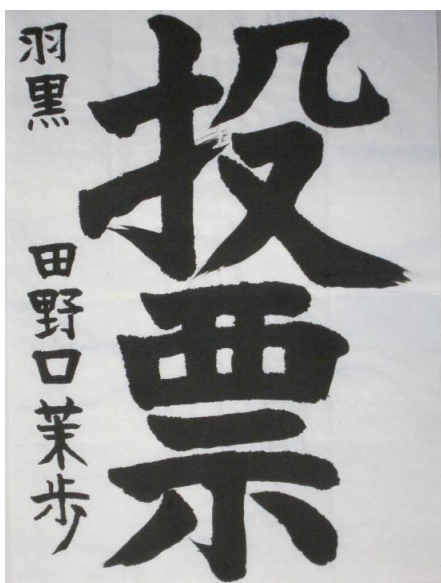 投票
羽黒 田野口茉歩